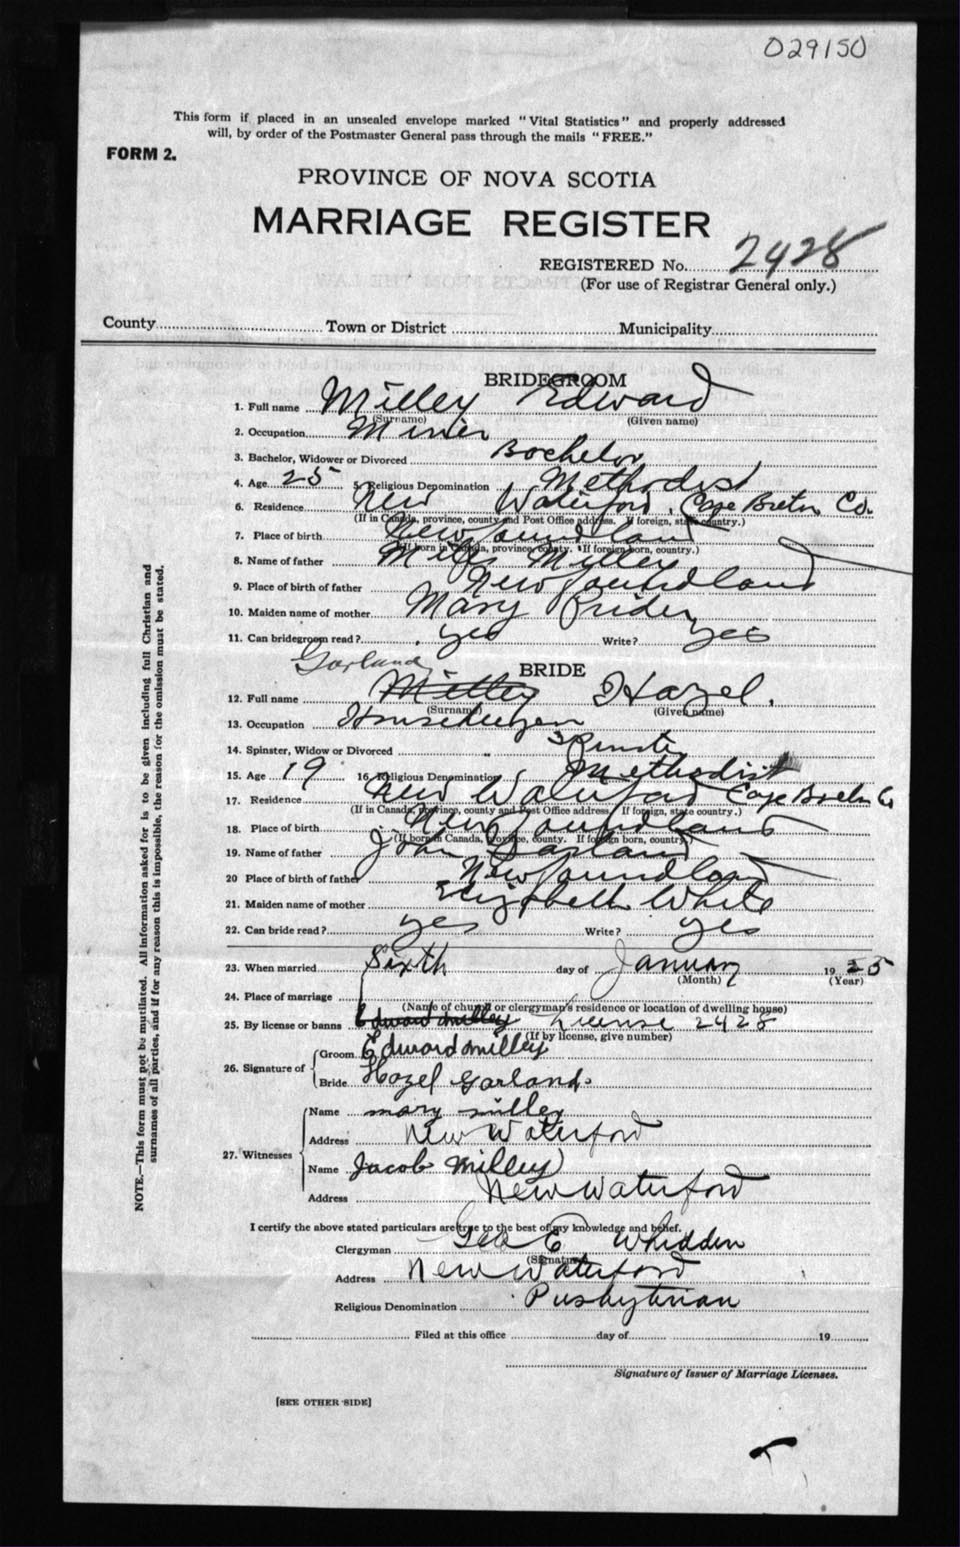 029150
This form if placed in an unsealed envelope marked "Vital Statistics" and properly addressed
will, by order of the Postmaster General pass through the mails "FREE."
FORM 2.
PROVINCE OF NOVA SCOTIA
MARRIAGE REGISTER
REGISTERED No. 2428
(For use of Registrar General only.)
County Town or District Municipality
BRIDEGROOM
1. Full name Milley Edward
(Surname) (Given name)
2. Occupation Miner
3. Bachelor, Widower or Divorced Bachelor
4. Age 25 5. Religious Denomination Methodist
6. Residence New Waterford, Cape Breton Co.
(If in Canada, province, county and Post Office address. If foreign, state country.)
7. Place of birth Newfoundland
(If born in Canada, province, county. If foreign born, country.)
8. Name of father Milley
9. Place of birth of father Newfoundland
10. Maiden name of mother Mary
11. Can bridegroom read? yes Write? yes
Garland
BRIDE
12. Full name Milley Hazel.
(Surname) (Given name)
13. Occupation Housekeeper
14. Spinster, Widow or Divorced Spinster
15. Age 19 16. Religious Denomination Methodist
17. Residence New Waterford Cape Breton Co
(If in Canada, province, county and Post Office address. If foreign, state country.)
18. Place of birth Newfoundland
(If born in Canada, province, county. If foreign born, country.)
19. Name of father John Garland
20 Place of birth of father Newfoundland
21. Maiden name of mother Elizabeth White
22. Can bride read? yes Write? yes
23. When married Sixth day of January 1925
(Month) (Year)
24. Place of marriage
(Name of church or clergyman's residence or location of dwelling house)
25. By license or banns Edward Milley License 2428
(If by license, give number)
26. Signature of
Groom Edward Milley
Bride Hazel Garland.
27. Witnesses
Name Mary Milley
Address New Waterford
Name Jacob Milley
Address New Waterford
I certify the above stated particulars are true to the best of my knowledge and belief.
Clergyman Geo E Whidden
(Signature)
Address New Waterford
Religious Denomination Presbyterian
Filed at this office day of 19
Signature of Issuer of Marriage Licenses.
[SEE OTHER SIDE]
NOTE.—This form must not be mutilated. All information asked for is to be given including full Christian and
surnames of all parties, and if for any reason this is impossible, the reason for the omission must be stated.